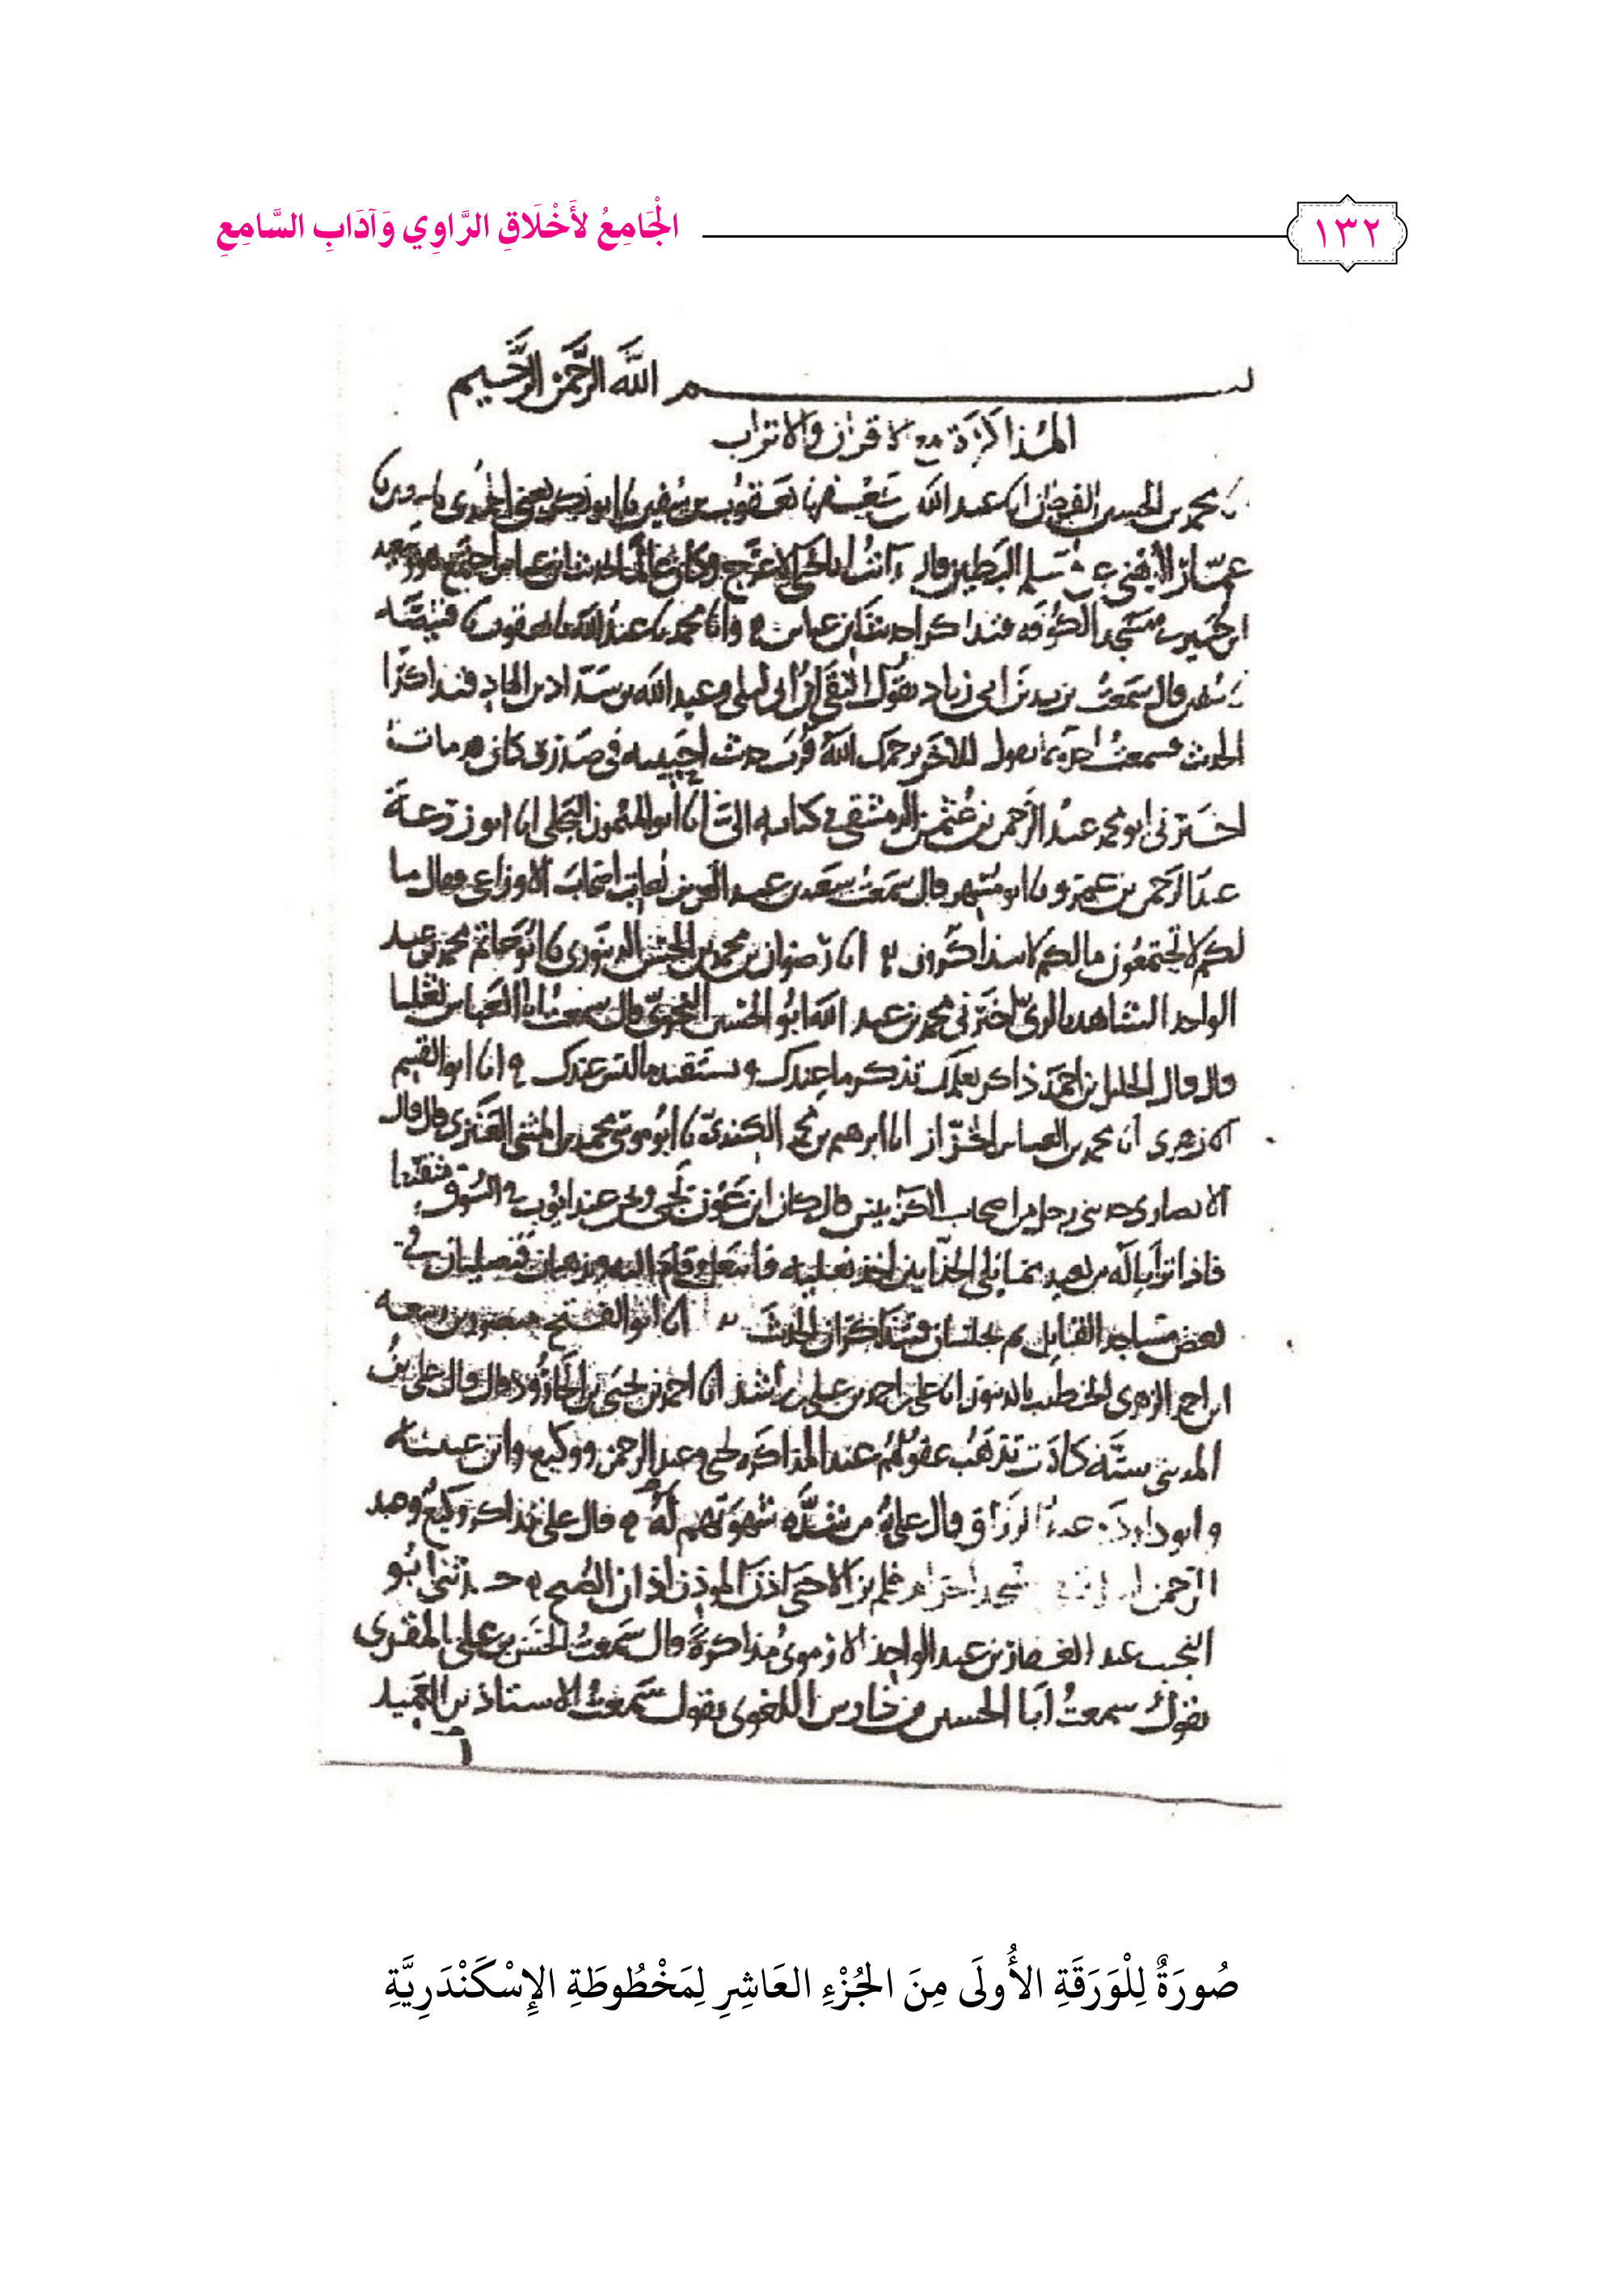 ١٣٢
الْجَامِعُ لأَخْلَاقِ الرَّاوِي وَآدَابِ السَّامِعِ
بسم اللَّه الرَّحمن الرَّحيم
المُذاكَرَة مع الاقران والاتراب
محمد بن الحسين القطان عبد الله يعقوب بن سفين
عمار الدهني عن مسلم البطين قال رأيت ابا يحيى الاعرج وكان عالما بحديث ابن عباس اجتمع هو وسعيد
ابن جبير مسجد الكوفه فتذاكرا حديث ابن عباس وانا محمد عبد الله يعقوب قبيصه
سفين قال سمعتُ يزيد بن ابي زياد يقول التقى ابن ابي ليلى وعبد الله بن شداد بن الهاد فتذاكرا
الحديث فسمعتُ احدهما يقول للاخر يرحمك الله فرب حديث احييته في صدري كان قد مات
اخبرني ابو محمد عبد الرحمن بن عثمن الدمشقي في كتابه الي انا ابو الميمون البجلي انا ابو زرعة
عبد الرحمن بن عمرو نا ابو مسهر قال سمعت سعيد بن عبد العزيز يعاتب اصحاب الاوزاعي فقال ما
لكم لا تجتمعون مالكم لا تتذاكرون انا رضوان بن محمد بن الحسن الدينوري نا ابو حاتم محمد بن عبد
الواحد الشاهد بالري اخبرني محمد بن عبد الله ابو الحسن النحوي قال سمعت ابا العباس ثعلبا
قال قال الخليل بن احمد ذاكر بعلمك تذكر ما عندك وتستفيد ما ليس عندك انا ابو القسم
الازهري انا محمد بن العباس الخزاز انا ابرهيم بن محمد الكندي نا ابو موسى محمد بن المثنى العنزي قال قال
الانصاري حدثني رجل من اصحاب الكرابيس قال كان ابن عون يجي ونحن عند ايوب في السوق
فاذا تراءا له من بعيد مما يلي الحذايين اخذ نعليه فانتعل وقام اليه ويذهبان فيصليان في
بعض مساجد القبايل ثم يجلسان فيتذاكران الحديث انا ابو الفتح منصور بن ربيعه
ابن احمد الزهري الخطيب بالدينور انا علي بن احمد بن علي بن راشد انا احمد بن يحيى بن الجارود قال قال علي بن
المديني ستة كادت تذهب عقولهم عند المذاكره يحيى وعبد الرحمن ووكيع وابن عيينه
وابو داود عبد الرزاق قال علي من شدّه شهوتهم له قال علي تذاكر وكيع وعبد
الرحمن فلم يزالا حتى اذن الموذن اذان الصبح حدثني ابو
النجيب عبد الغفار بن عبد الواحد الارموي مذاكرةً قال سمعتُ الحسن بن علي المقري
يقول سمعتُ ابا الحسين بن فارس اللغوي يقول سمعتُ الاستاذ بن العميد
صُورَةٌ لِلْوَرَقَةِ الأُولَى مِنَ الجُزْءِ العَاشِرِ لِمَخْطُوطَةِ الإِسْكَنْدَرِيَّةِ